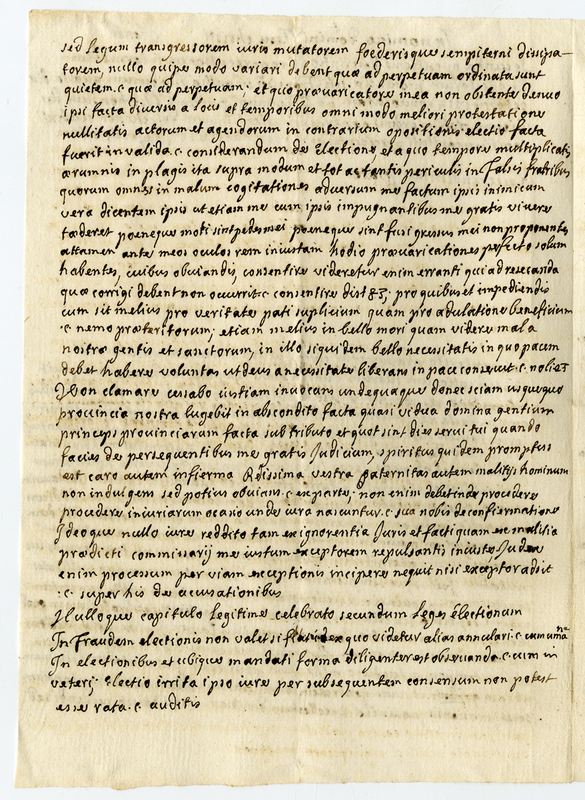 sed legum transgressorem iuris mutatorem foederisque sempiterni dissipa-
torem, nullo quipe modo variari debent quæ ad perpetuam ordinata sunt
quietem. c. quæ ad perpetuam; et quo prævaricatore mea non obstante denuo
ipsi facta diversis a locis et temporibus omni modo meliori protestatione
nullitatis actorum et agendorum in contrarium opositionis electio facta
fuerit invalida. c. considerandum de Electione et a quo tempore multiplicatis
ærumnis in plagis ita supra modum et tot ac tantis periculis in falsis fratribus
quorum omnes in malum cogitationes adversum me factum ipsis inimicum
vera dicentem ipsis ut etiam me cum ipsis impugnantibus me gratis vivere
tæderet poeneque moti sint pedes mei poeneque sint fusi gressus mei non proponentes
attamen ante meos oculos rem iniustam hodio prævaricationes perfecto solum
habentes, quibus obviandis, consentire videretur enim erranti qui ad resecanda
quæ corrigi debent non occurrit. c. consentire dist 83; pro quibus et impediendis
cum sit melius pro veritate pati suplicium quam pro adulatione beneficium
c. nemo præteritorum; etiam melius in bello mori quam videre mala
nostræ gentis et sanctorum, in illo siquidem bello necessitatis in quo pacem
debet habere voluntas ut deus a necessitate liberans in pace conservet. c. noli 23
Non clamare cessabo iustiam invocans undequaque donec sciam usquequo
provincia nostra lugebit in abscondito facta quasi vidua domina gentium
princeps provinciarum facta sub tributo et quot sint dies servi tui quando
facies de persequentibus me gratis Judicium, spiritus quidem promptus
est caro autem infierma Rdissima vestra paternitas autem malitijs hominum
non indulgens sed potius obvians. c. ex parte; non enim debet inde procedere
procedere iniuriarum ocasio unde iura nascuntur. c. sua nobis de confiermatione
Ideoque nullo iure reddito tam ex ignorentia Juris et facti quam ex malitia
prædicti commissarij me iustum exceptorem repulsantis iniuste Judex
enim processum per viam exceptionis incipere nequit nisi exceptor adsit
c. super his de acusationibus
Nulloque capitulo legitime celebrato secundum leges Electionum
In fraudem electionis non valet si ex quo videtur alias annulari. c. cum una
In electionibus et ubique mandati forma diligenter est observanda. c. cum in
veteri; electio irrita ipso iure per subsequentem consensum non potest
esse rata. c. auditis